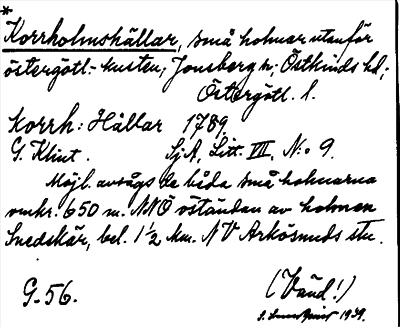 *
Korrholmshällar, små holmar utanför
östergötl.-kusten; Jonsberg sn; Östkinds hd;
Östergötl. l.
Korrh: Hällar 1789.
G. Klint. SjA, Litt. VII, No 9.
Möjl. avsågs de båda små holmarna
omkr. 650 m. NNÖ öständan av holmen
Snedskär, bel. 1 1/2 km. NV Arkösunds stn.
G-56. (Vänd!)
1939.